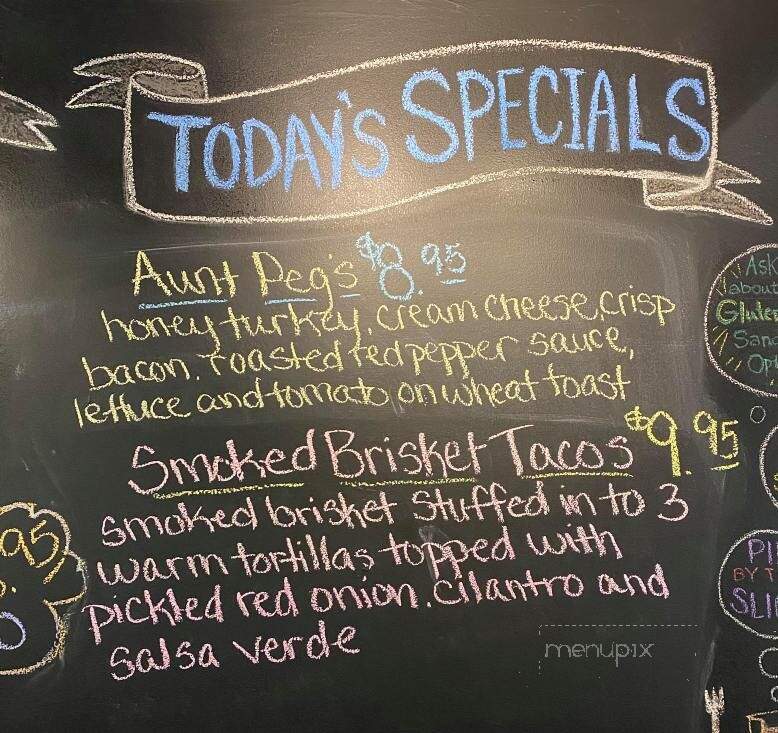 TODAY'S SPECIALS
Aunt Peg's $8.95
honey turkey, cream cheese, crisp
bacon, roasted red pepper sauce,
lettuce and tomato on wheat toast
Smoked Brisket Tacos $9.95
smoked brisket stuffed in to 3
warm tortillas topped with
pickled red onion, cilantro and
salsa verde
Ask
about
menupix